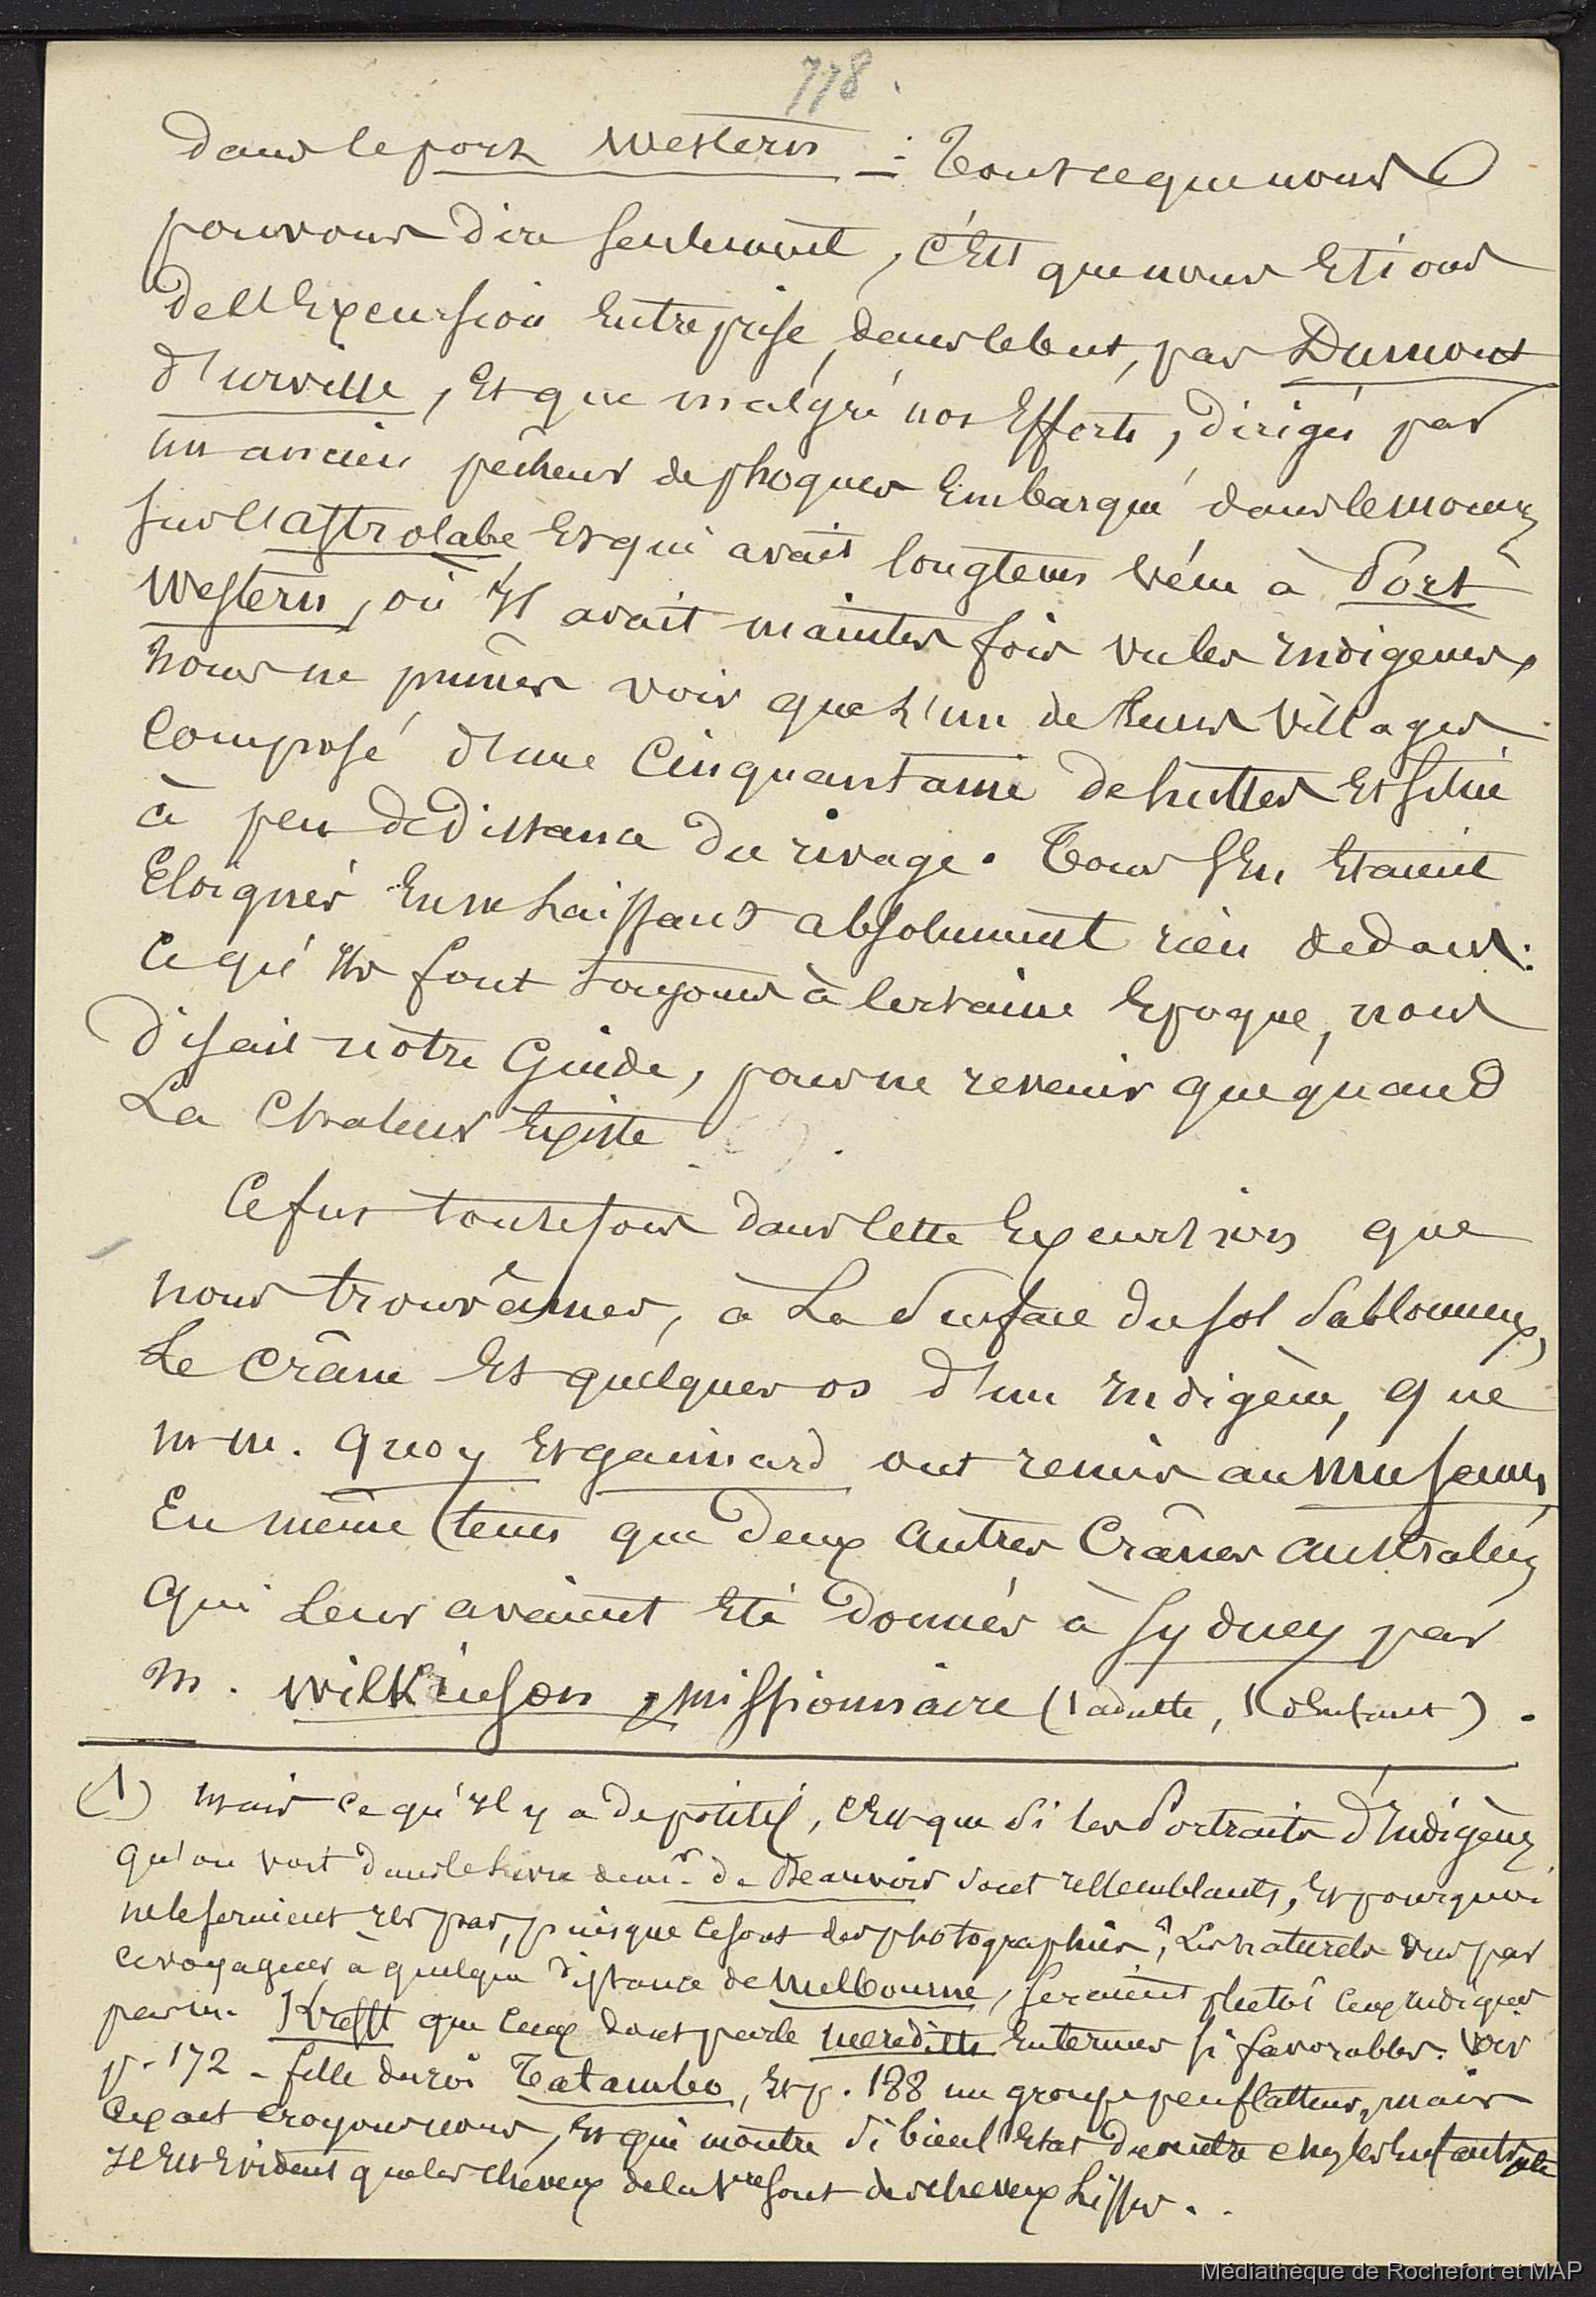 778.
dans le port Western : Tout ce que nous
pouvons dire seulement, c'est que nous étions
de l'Excursion Entreprise, dans le but, par Dumont
d'urville, Et que malgré nos Efforts, dirigés par
un ancien pêcheur de phoques Embarqué dans le moment
sur l'astrolabe Et qui avait longtems vécu à Port
Western, où Il avait maintes fois vu les Indigenes,
nous ne pumes voir que l'un de leurs Villages
Composé d'une Cinquantaine de huttes Et situé
à peu de distance du rivage. Tous s'En Etaient
Eloignés En ne Laissant absolument rien dedans:
Ce qu'Ils font toujours à Certaine Epoque, nous
disait nôtre Guide, pour ne revenir que quand
La Chaleur Existe .
Ce fut toutefois dans Cette Excursion que
nous trouvâmes, à La Surface du sol Sablonneux,
Le Crâne Et quelques os d'un Indigène, que
m m. Quoy Et gaimard ont remis au museum,
En même tems que deux autres Crânes australiens
Qui Leur avaient Eté donnés à Sydney par
m. Wilkinson, missionnaire (1 adulte, 1 d'Enfant).
(1) mais ce qu'Il y a de positif, C'Est que Si les Portraits d'Indigènes
qu'on voit dans le Livre de mr. de Beauvoir sont ressemblants, Et pourquoi
ne le seraient Ils pas, puisque ce sont des photographies, Les naturels vus par
ce voyageur à quelque distance de Melbourne, seraient plutôt Ceux Indiqués
par m. Krefft que Ceux dont parle meredith En termes si favorables. Voir
p. 172 - fille du roi Tatambo, Et p. 188 un groupe peu flatteur, mais
Exact croyons nous, Et qui montre si bien l'Etat du ventre chez les Enfants
Il Est Evident que les cheveux de la 1re sont des cheveux Lisses.
Médiathèque de Rochefort et MAP